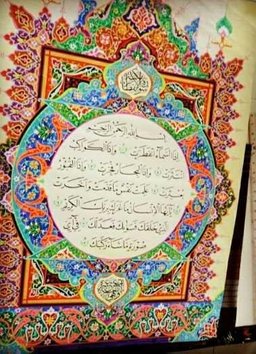 بِسْمِ اللَّهِ الرَّحْمَٰنِ الرَّحِيمِ
إِذَا السَّمَاءُ انْفَطَرَتْ وَإِذَا الْكَوَاكِبُ
انْتَثَرَتْ وَإِذَا الْبِحَارُ فُجِّرَتْ وَإِذَا الْقُبُورُ
بُعْثِرَتْ عَلِمَتْ نَفْسٌ مَا قَدَّمَتْ وَأَخَّرَتْ
يَا أَيُّهَا الْإِنْسَانُ مَا غَرَّكَ بِرَبِّكَ الْكَرِيمِ
الَّذِي خَلَقَكَ فَسَوَّاكَ فَعَدَلَكَ فِي أَيِّ
صُورَةٍ مَا شَاءَ رَكَّبَكَ